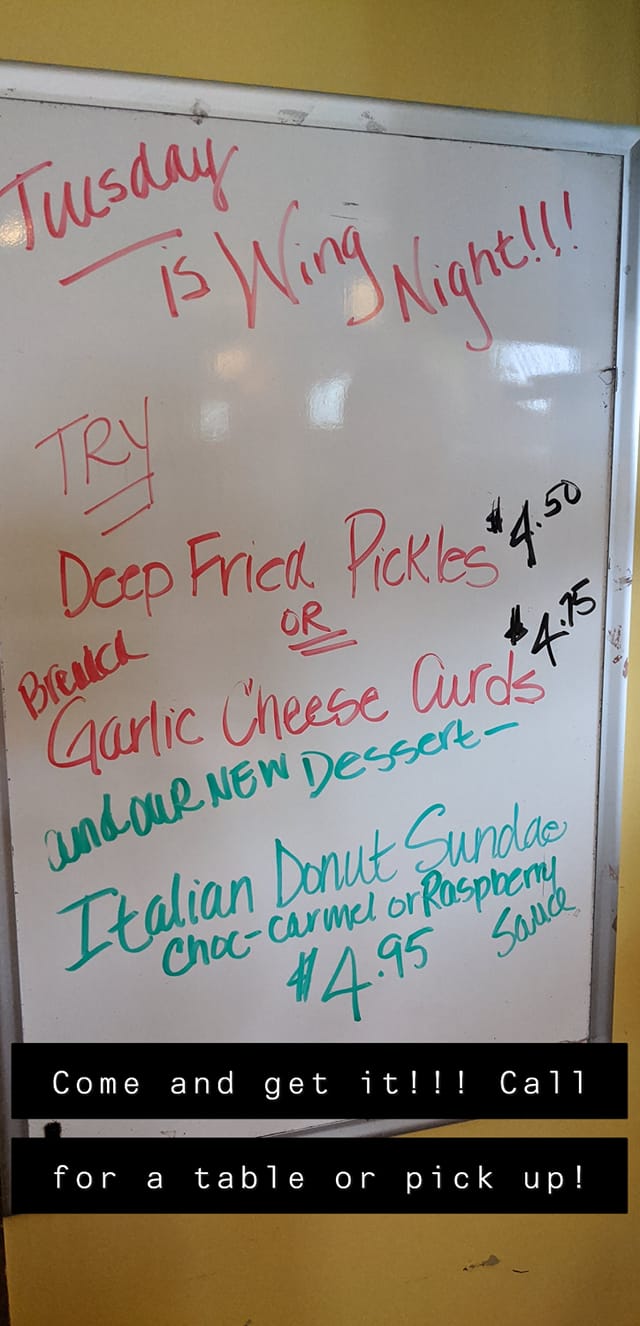 Tuesday
is Wing Night!!!
TRY
Deep Fried Pickles $4.50
OR
Bread Garlic Cheese Curds $4.75
and OUR NEW Dessert-
Italian Donut Sundae
Choc-carmel or Raspberry Sauce
$4.95
Come and get it!!! Call
for a table or pick up!